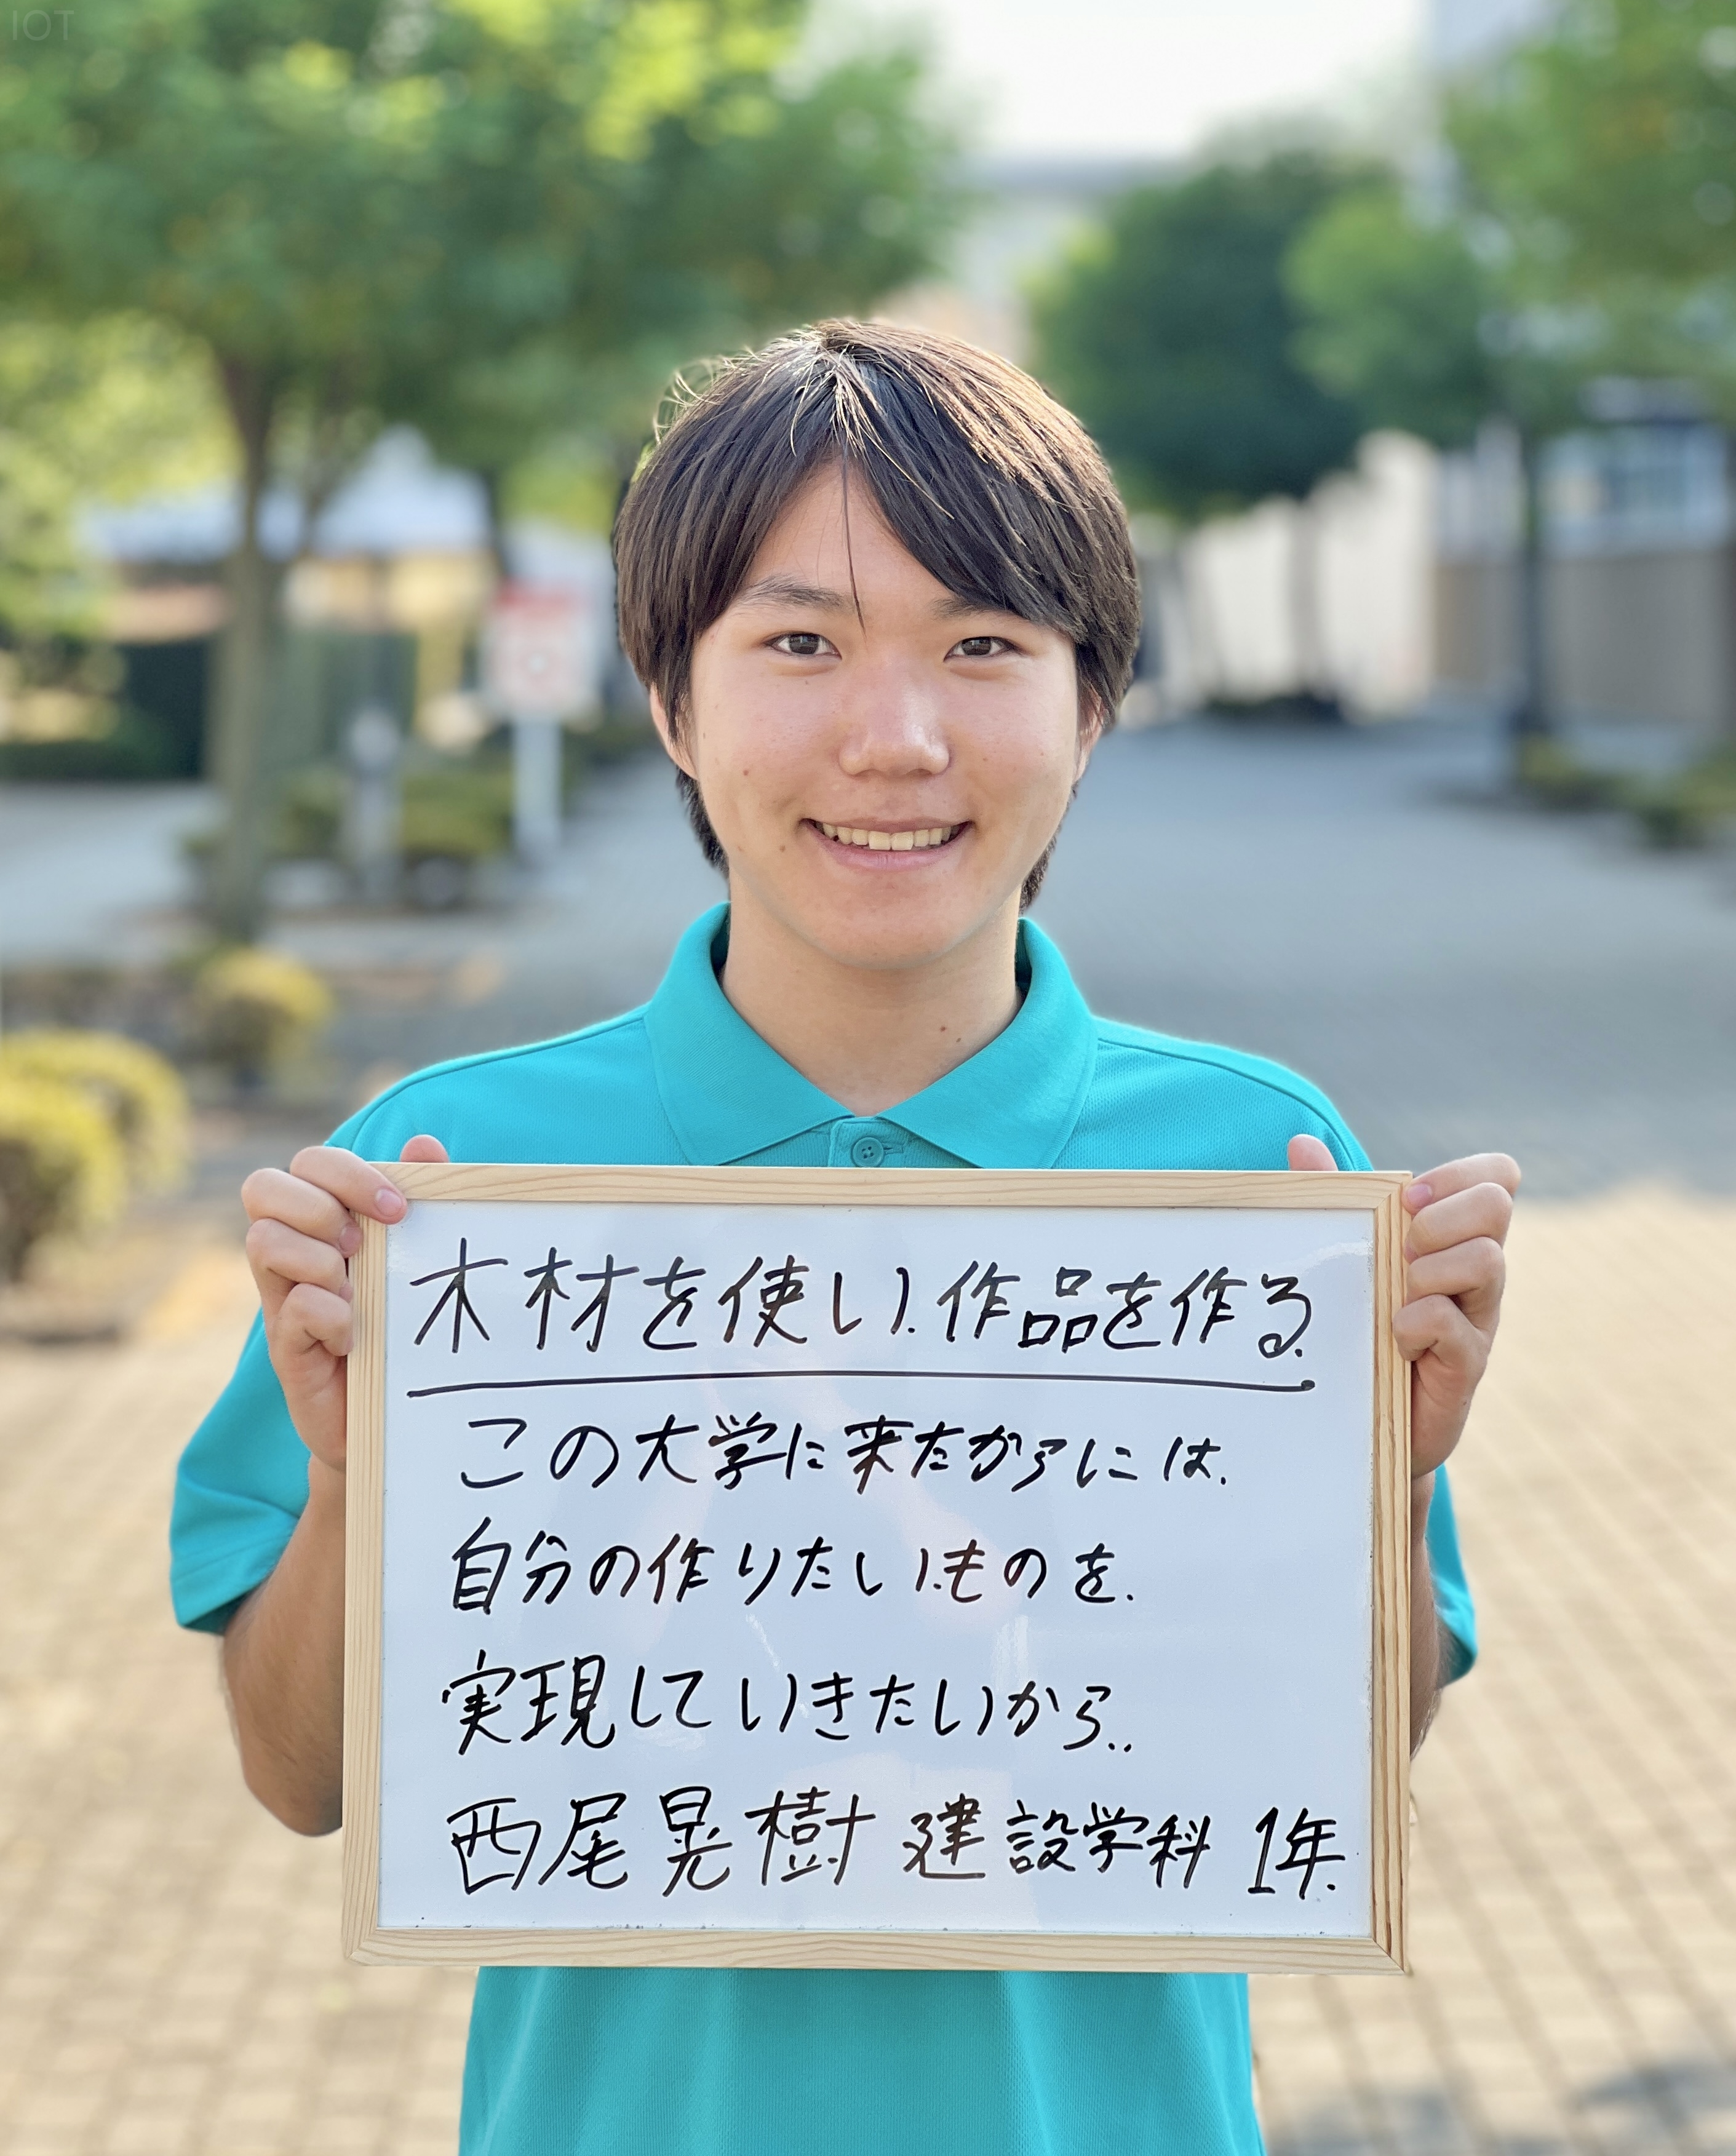 IOT
木材を使い、作品を作る。
この大学に来たからには、
自分の作りたいものを、
実現していきたいから。。
西尾晃樹 建設学科 1年。